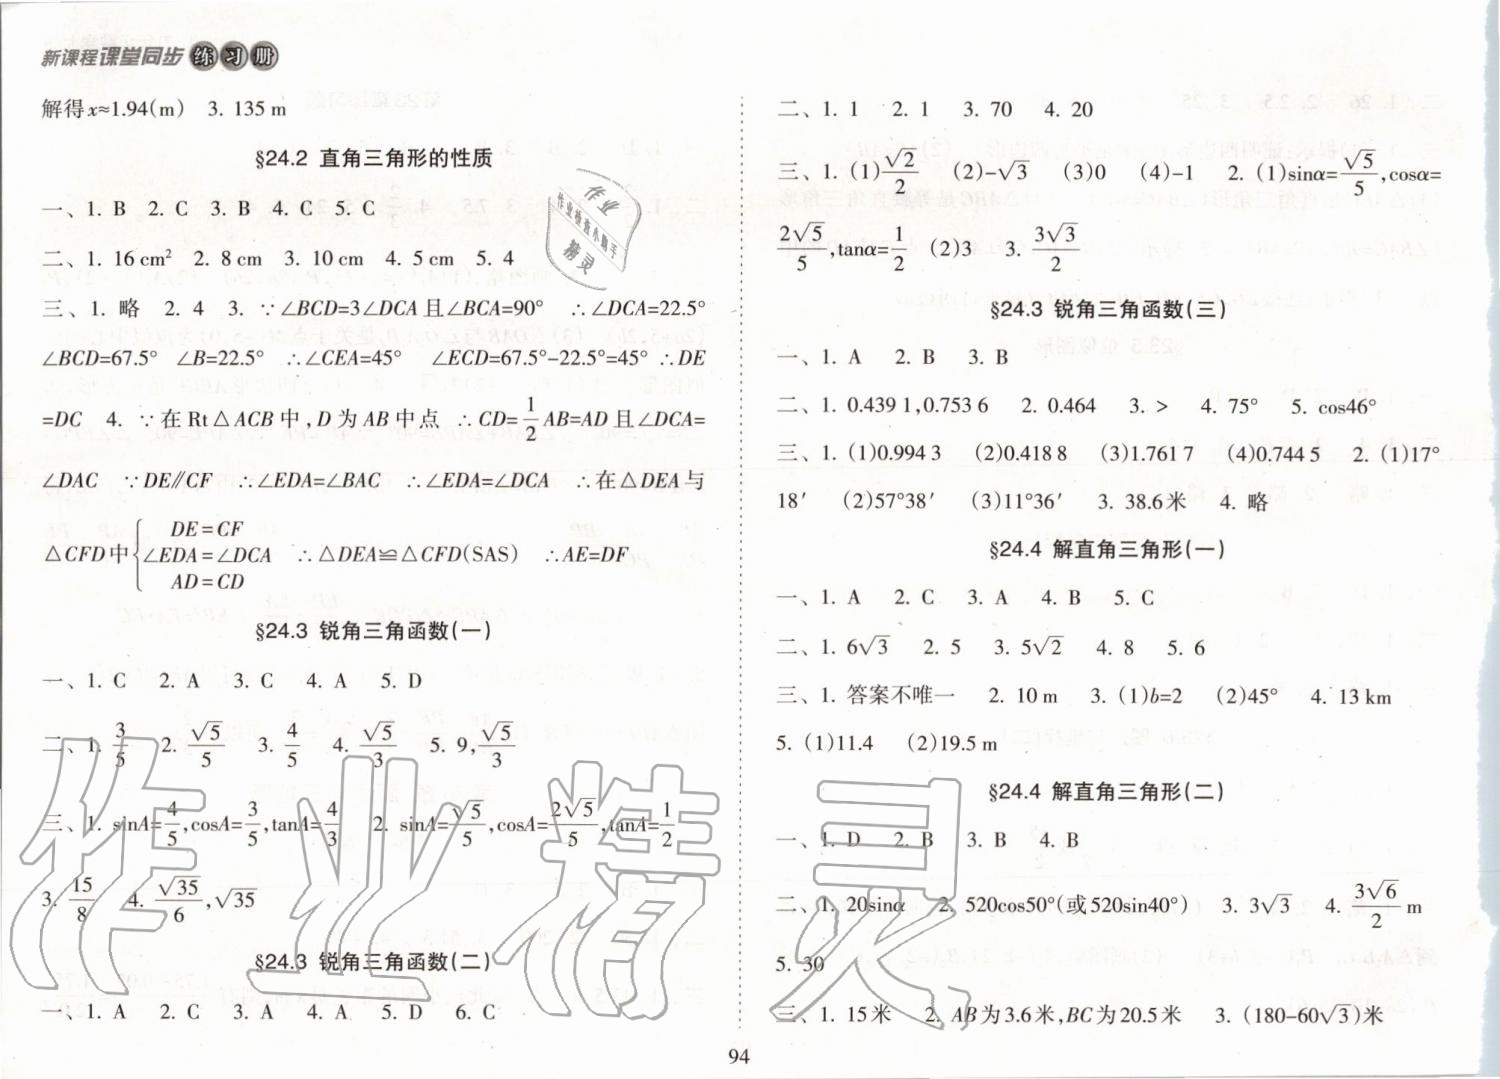 新课程课堂同步练习册
解得x≈1.94(m) 3. 135 m
§24.2 直角三角形的性质
一、1. B 2. C 3. B 4. C 5. C
二、1. 16 cm² 2. 8 cm 3. 10 cm 4. 5 cm 5. 4
三、1. 略 2. 4 3. ∵∠BCD=3∠DCA且∠BCA=90° ∴∠DCA=22.5°
∠BCD=67.5° ∠B=22.5° ∴∠CEA=45° ∠ECD=67.5°-22.5°=45° ∴DE
=DC 4. ∵在Rt△ACB中,D为AB中点 ∴CD=1/2AB=AD且∠DCA=
∠DAC ∵DE∥CF ∴∠EDA=∠BAC ∴∠EDA=∠DCA ∴在△DEA与
△CFD中{DE=CF
∠EDA=∠DCA ∴△DEA≌△CFD(SAS) ∴AE=DF
AD=CD
§24.3 锐角三角函数(一)
一、1. C 2. A 3. C 4. A 5. D
二、1. 3/5 2. √5/5 3. 4/5 4. √5/3 5. 9,√5/3
三、1. sinA=4/5,cosA=3/5,tanA=4/3 2. sinA=√5/5,cosA=2√5/5,tanA=1/2
3. 15/8 4. √35/6,√35
§24.3 锐角三角函数(二)
一、1. A 2. C 3. A 4. A 5. D 6. C
二、1. 1 2. 1 3. 70 4. 20
三、1. (1)√2/2 (2)-√3 (3)0 (4)-1 2. (1)sinα=√5/5,cosα=
2√5/5,tanα=1/2 (2)3 3. 3√3/2
§24.3 锐角三角函数(三)
一、1. A 2. B 3. B
二、1. 0.439 1,0.753 6 2. 0.464 3. > 4. 75° 5. cos46°
三、1. (1)0.994 3 (2)0.418 8 (3)1.761 7 (4)0.744 5 2. (1)17°
18′ (2)57°38′ (3)11°36′ 3. 38.6米 4. 略
§24.4 解直角三角形(一)
一、1. A 2. C 3. A 4. B 5. C
二、1. 6√3 2. 5 3. 5√2 4. 8 5. 6
三、1. 答案不唯一 2. 10 m 3. (1)b=2 (2)45° 4. 13 km
5. (1)11.4 (2)19.5 m
§24.4 解直角三角形(二)
一、1. D 2. B 3. B 4. B
二、1. 20sinα 2. 520cos50°(或520sin40°) 3. 3√3 4. 3√6/2 m
5. 30
三、1. 15米 2. AB为3.6米,BC为20.5米 3. (180-60√3)米
94
作业
作业检查小助手
精灵
作业精灵